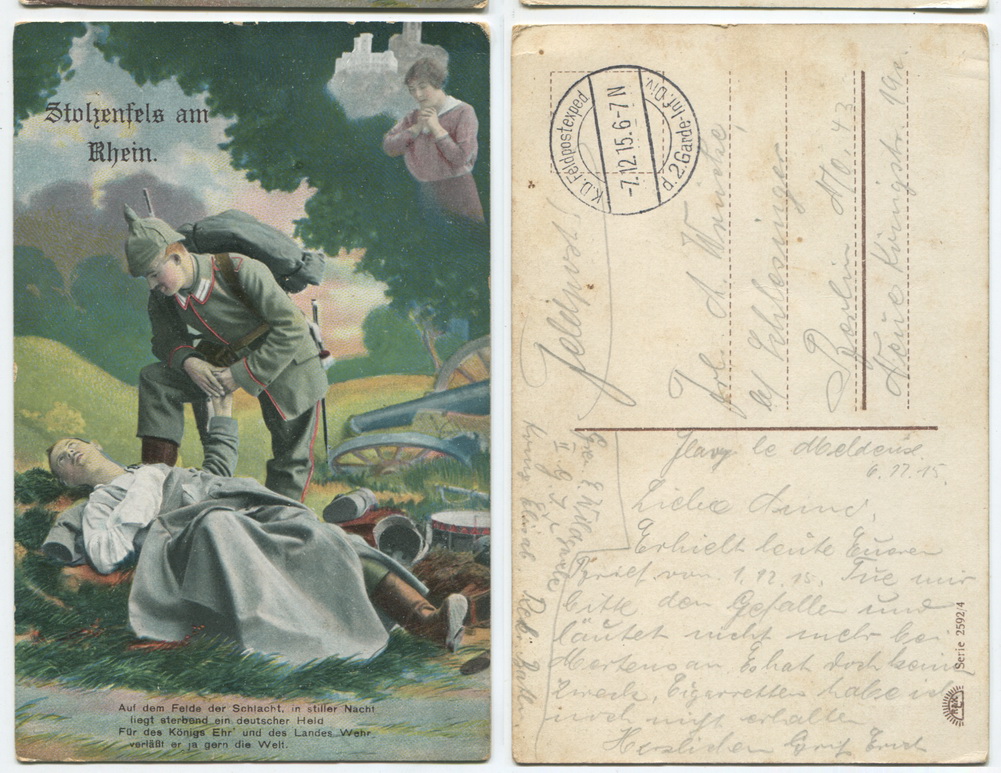 Stolzenfels am
Rhein.
Auf dem Felde der Schlacht, in stiller Nacht
liegt sterbend ein deutscher Held
Für des Königs Ehr' und des Landes Wehr,
verläßt er ja gern die Welt.
K.D. Feldpostexped
-7.12.15. 6-7 N
d. 2. Garde-Inf. Div.
Feldpost
Frl. A.
b/ Schlesinger
Berlin NO. 43
Neue Königstr.
le
6.12.15.
Liebe
Erhielt heute Eueren
Brief vom 1.12.15. Tue mir
bitte den Gefallen und
läutet nicht mehr bei
Martens an. Es hat doch kein
Zweck. Zigaretten habe ich
noch nicht erhalten
Herzlichen Gruß Erich
Serie 2592/4